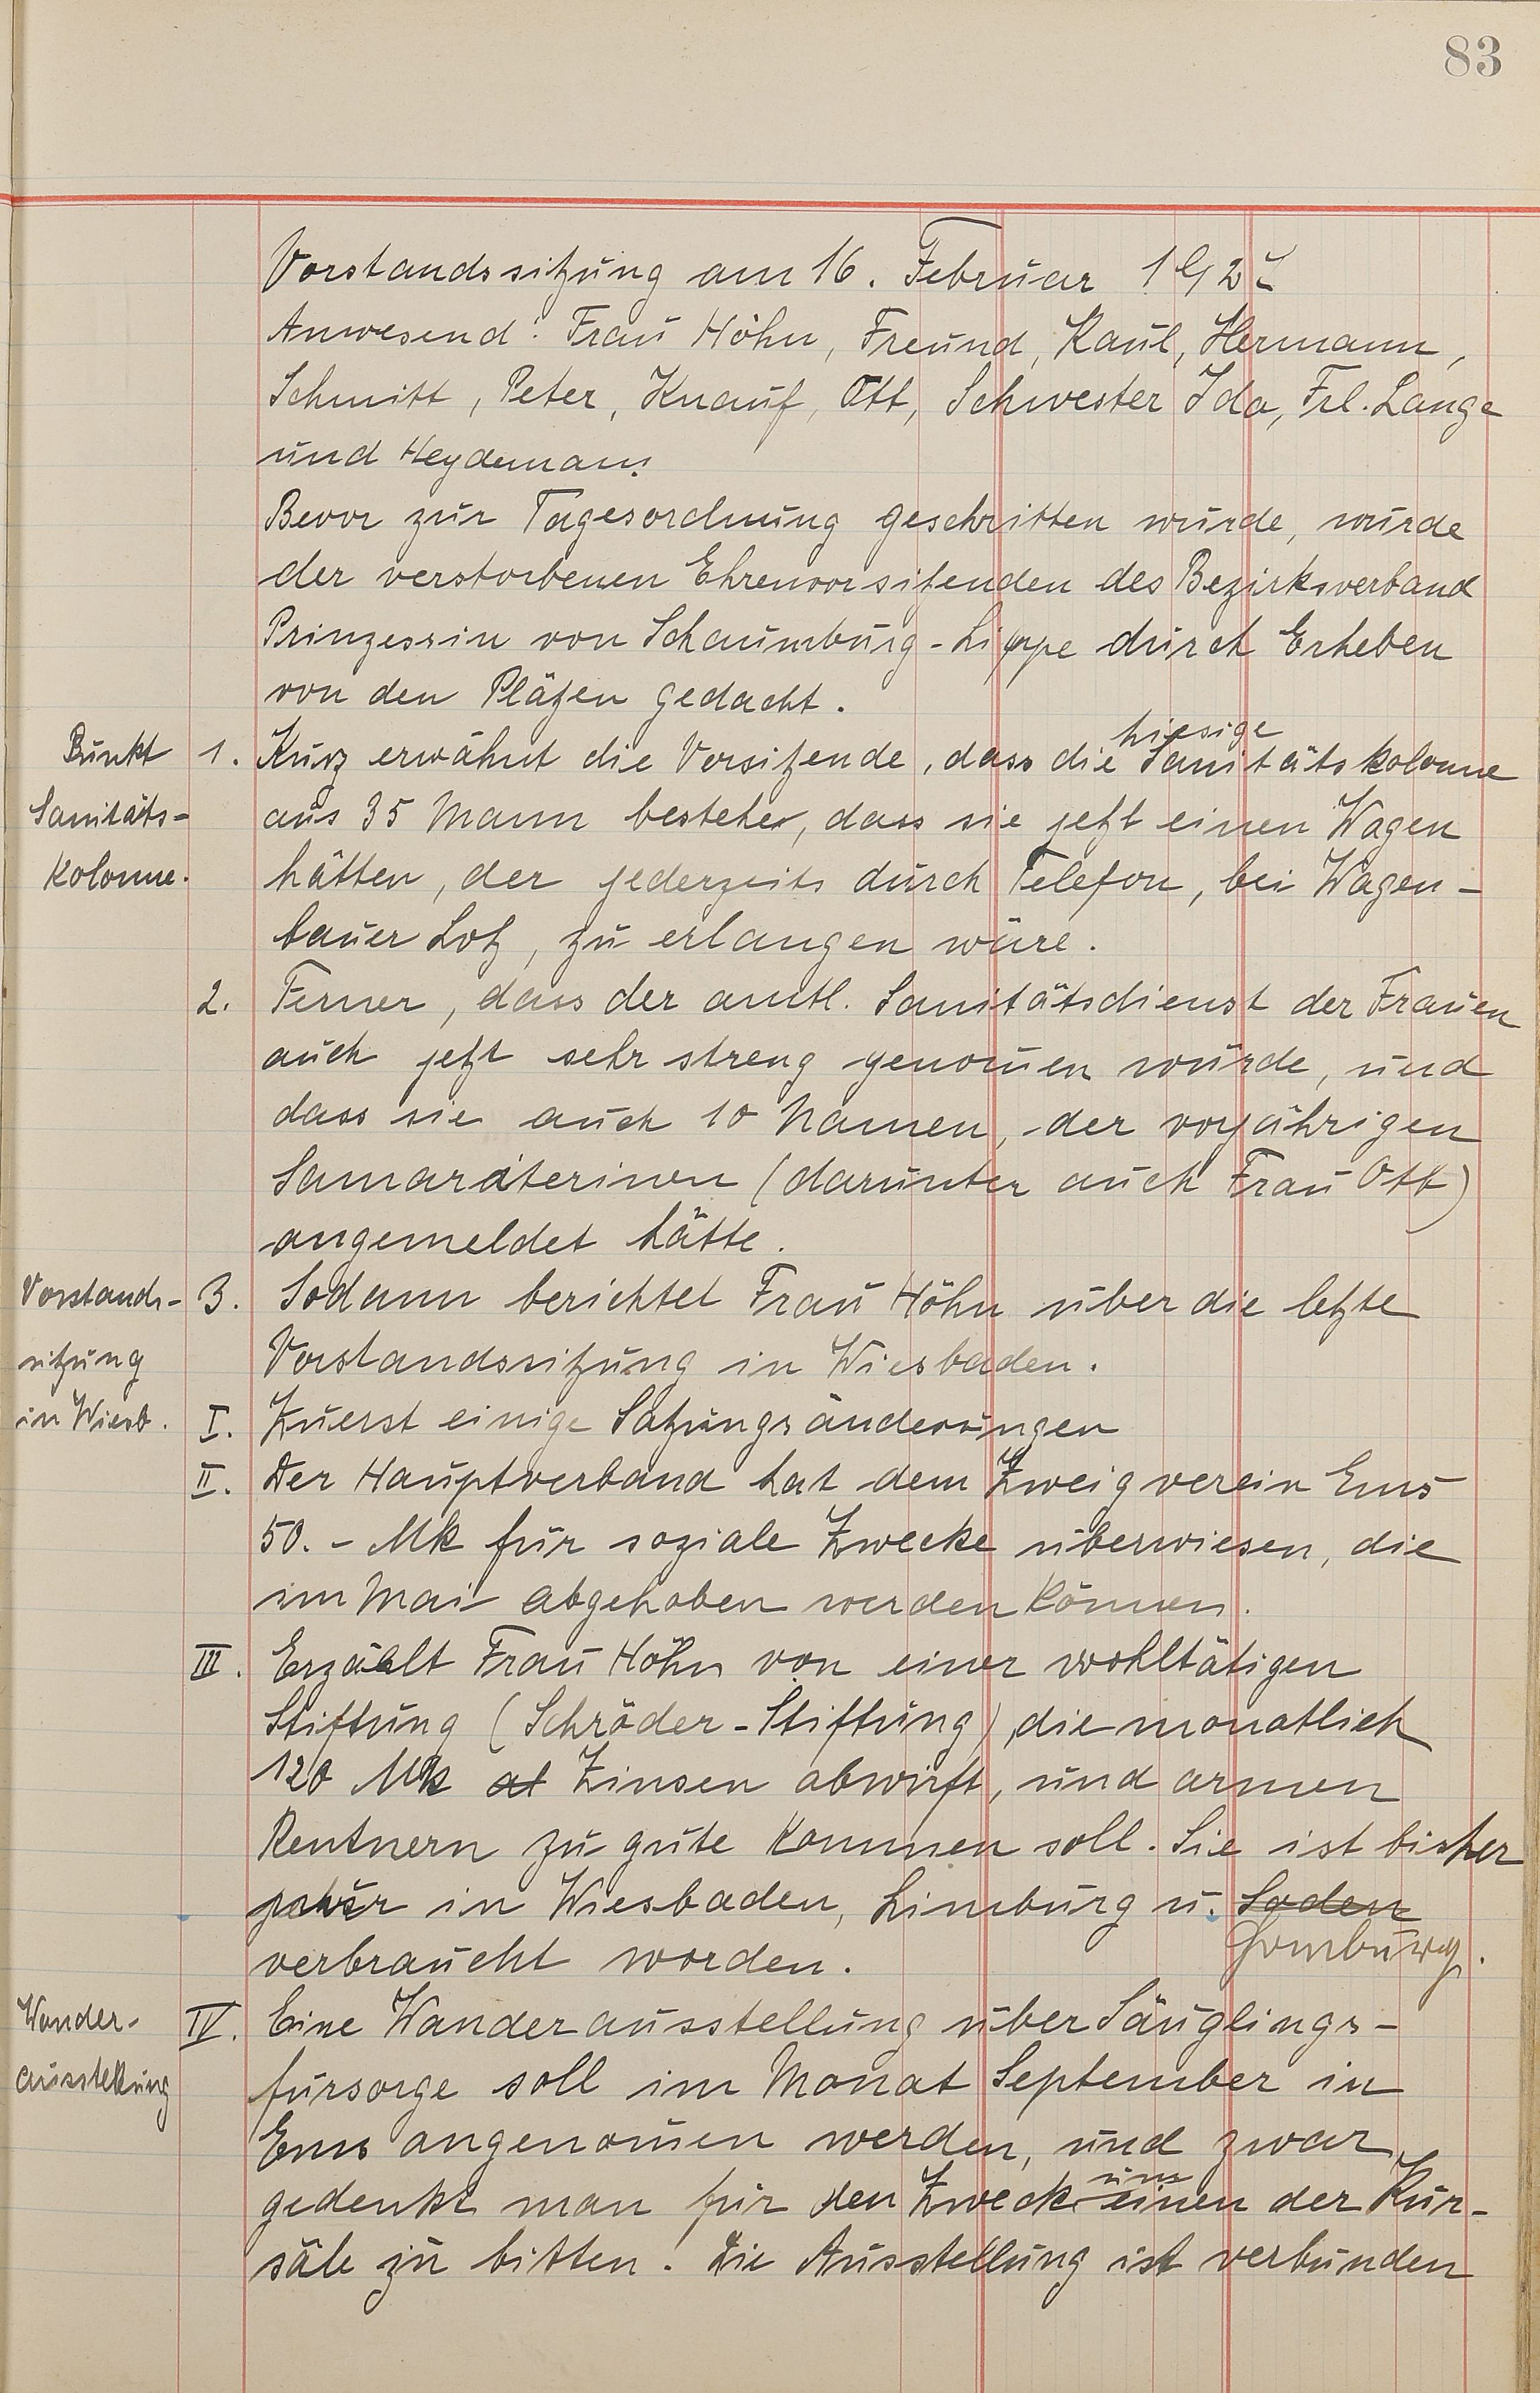 83
Vorstandssitzung am 16. Februar 1927
Anwesend: Frau Höhn, Freund, Kaul, Hermann,
Schmitt, Peter, Knauf, Ott, Schwester Ida, Frl. Lange
und Heydemann.
Bevor zur Tagesordnung geschritten wurde, wurde
der verstorbenen Ehrenvorsitenden des Bezirksverband
Prinzessin von Schaumburg-Lippe durch Erheben
von den Pläzen gedacht.
hiesige
Punkt 1. Kurz erwähnt die Vorsitzende, dass die Sanitätskolonne
Sanitäts- aus 35 Mann bestehe, dass sie jetzt einen Wagen
kolonne. hätten, der jederzeits durch Telefon, bei Wagen-
bauer Lotz, zu erlangen wäre.
2. Ferner, dass der amtl. Sanitätsdienst der Frauen
auch jetzt sehr streng genomen würde, und
dass sie auch 10 Namen, der vorjährigen
Samariterinen (darunter auch Frau Ott)
angemeldet hätte.
Vorstands- 3. Sodann berichtet Frau Höhn über die letzte
sitzung Vorstandssitzung in Wiesbaden.
in Wiesb. I. Zuerst einige Satzungsänderungen
II. Der Hauptverband hat dem Zweigverein Ems
50.- Mk für soziale Zwecke überwiesen, die
im Mai abgehoben werden können.
III. Erzählt Frau Höhn von einer wohltätigen
Stiftung (Schröder-Stiftung), die monatlich
120 Mk at Zinsen abwirft, und armen
Rentnern zu gute kommen soll. Sie ist bisher
in Wiesbaden, Limburg u. Soden
verbraucht worden. Homburg.
Wander- IV. Eine Wanderausstellung über Säuglings-
ausstellung fürsorge soll im Monat September in
Ems angenomen werden, und zwar
um
gedenkt man für den Zweck einen der Kur-
säle zu bitten. Die Ausstellung ist verbunden